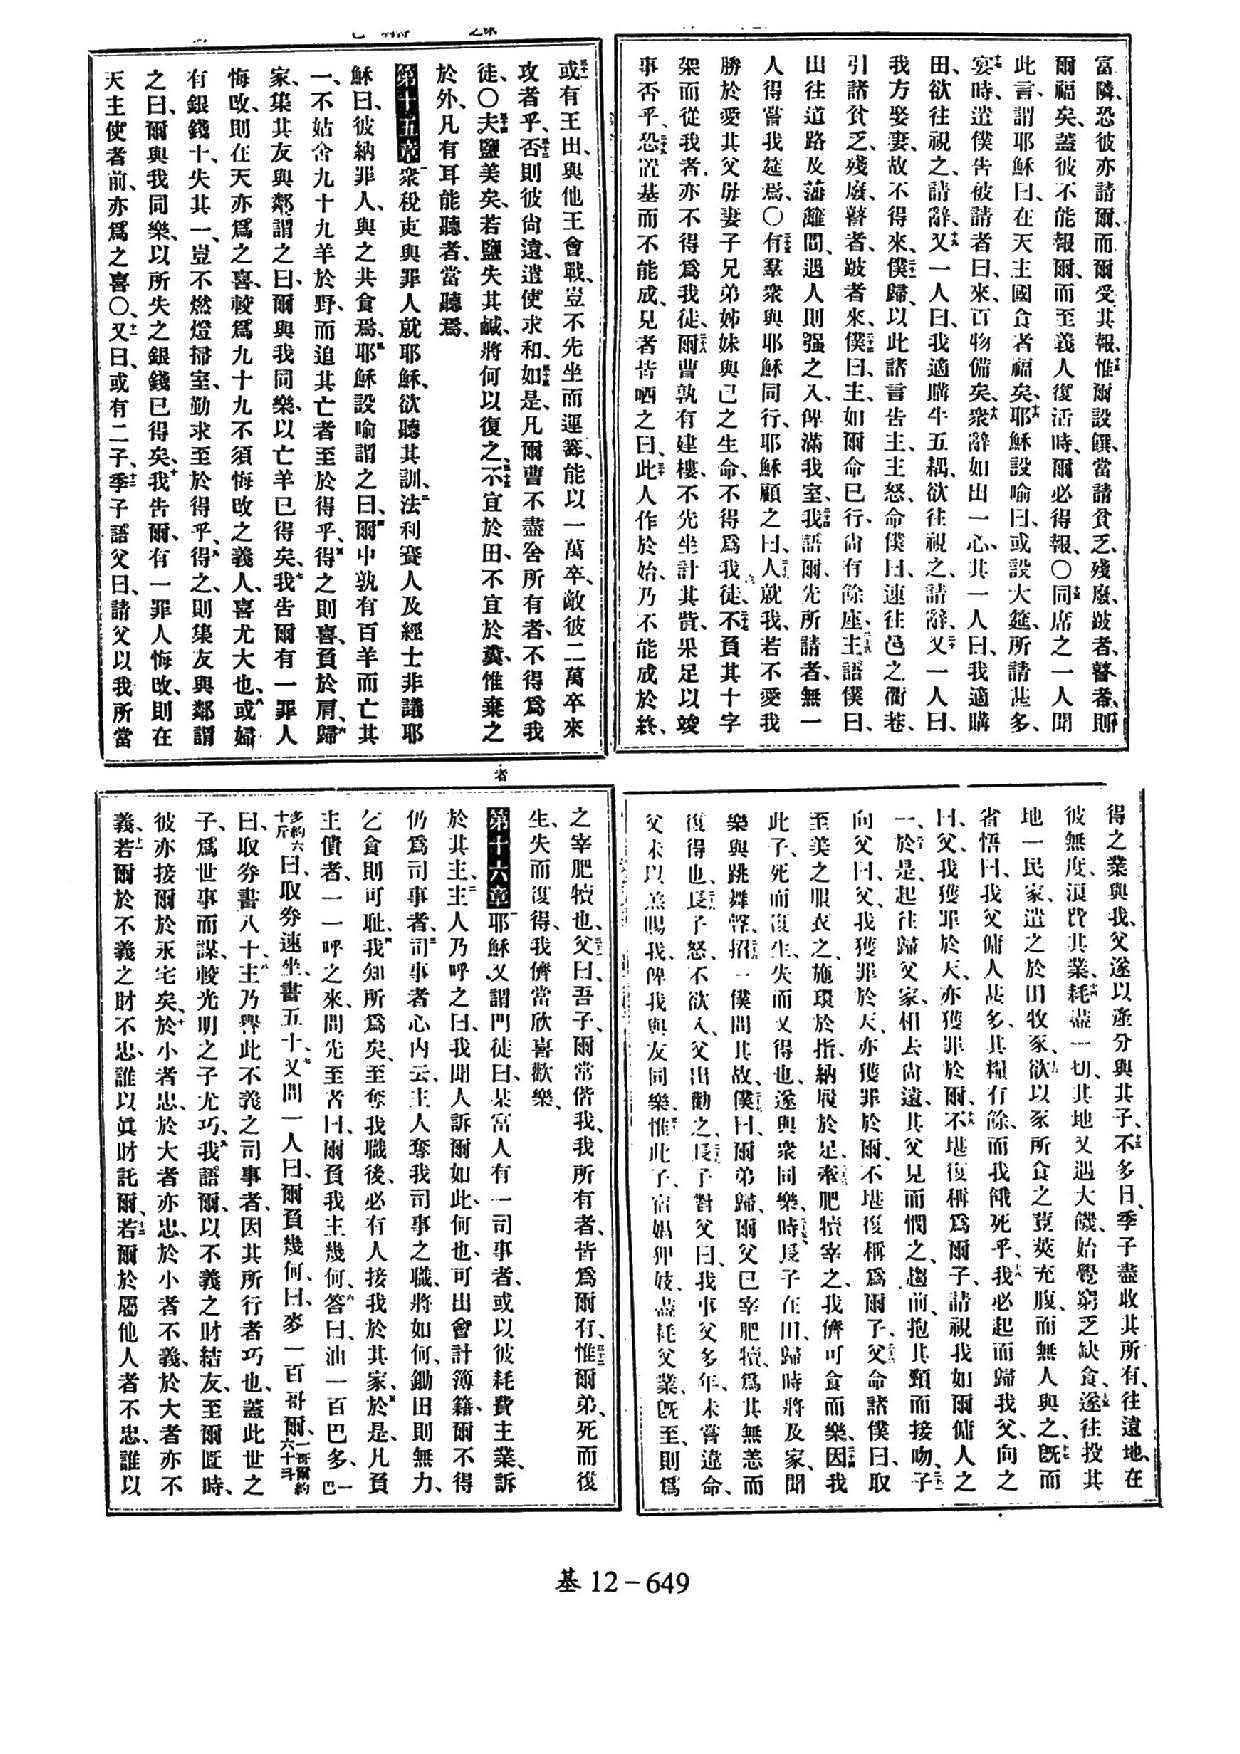 富隣、恐彼亦請爾、而爾受其報、惟爾設饌、當請貧乏、殘廢、跛者、瞽者、則
爾福矣、蓋彼不能報爾、而至義人復活時、爾必得報、〇同席之一人聞
此言、謂耶穌曰、在天主國食者福矣、耶穌設喻曰、或設大筵、所請甚多、
宴時遣僕告被請者曰、來、百物備矣、衆辭如出一心、其一人曰、我適購
田、欲往視之、請辭、又一人曰、我適購牛五耦、欲往視之、請辭、又一人曰、
我方娶妻、故不得來、僕歸、以此諸言告主、主怒、命僕曰、速往邑之衢巷、
引諸貧乏殘廢、瞽者、跛者來、僕曰、主如爾命已行、尚有餘座、主語僕曰、
出往道路及藩籬間、遇人則强之入、俾滿我室、我語爾、先所請者、無一
人得嘗我筵焉、〇有羣衆與耶穌同行、耶穌顧之曰、人就我、若不愛我
勝於愛其父母妻子兄弟姊妹與己之生命、不得爲我徒、不負其十字
架而從我者、亦不得爲我徒、爾曹孰有建樓、不先坐計其費、果足以竣
事否乎、恐置基而不能成、見者皆哂之曰、此人作於始、乃不能成於終、
或有王出、與他王會戰、豈不先坐而運籌、能以一萬卒、敵彼二萬卒來
攻者乎、否則彼尚遠、遣使求和、如是、凡爾曹不盡舍所有者、不得爲我
徒、〇夫鹽美矣、若鹽失其鹹、將何以復之、不宜於田、不宜於糞、惟棄之
於外、凡有耳能聽者、當聽焉、
第十五章 衆稅吏與罪人就耶穌、欲聽其訓、法利賽人及經士非議耶
穌曰、彼納罪人、與之共食焉、耶穌設喻謂之曰、爾中孰有百羊而亡其
一、不姑舍九十九羊於野、而追其亡者至於得乎、得之則喜、負於肩、歸
家、集其友與鄰謂之曰、爾與我同樂、以亡羊已得矣、我告爾、有一罪人
悔改、則在天亦爲之喜、較爲九十九不須悔改之義人、喜尤大也、或婦
有銀錢十、失其一、豈不燃燈掃室、勤求至於得乎、得之、則集友與鄰謂
之曰、爾與我同樂、以所失之銀錢已得矣、我告爾、有一罪人悔改、則在
天主使者前、亦爲之喜〇又曰、或有二子、季子語父曰、請父以我所當
得之業與我、父遂以產分與其子、不多日、季子盡收其所有、往遠地、在
彼無度、浪費其業、耗盡一切、其地又遇大饑、始覺窮乏缺食、遂往投其
地一民家、遣之於田牧豕、欲以豕所食之荳莢充腹、而無人與之、旣而
省悟曰、我父傭人甚多、其糧有餘、而我餓死乎、我必起而歸我父、向之
曰、父、我獲罪於天、亦獲罪於爾、不堪復稱爲爾子、請視我如爾傭人之
一、於是起往歸父家、相去尚遠、其父見而憫之、趨前、抱其頸而接吻、子
向父曰、父、我獲罪於天、亦獲罪於爾、不堪復稱爲爾子、父命諸僕曰、取
至美之服衣之、施環於指、納屨於足、牽肥犢宰之、我儕可食而樂、因我
此子、死而復生、失而又得也、遂與衆同樂、時長子在田、歸時將及家、聞
樂與跳舞聲、招一僕問其故、僕曰、爾弟歸、爾父已宰肥犢、爲其無恙而
復得也、長子怒、不欲入、父出勸之、長子對父曰、我事父多年、未嘗違命、
父未以羔賜我、俾我與友同樂、惟此子、宿娼狎妓、盡耗父業、旣至、則爲
之宰肥犢也、父曰、吾子、爾常偕我、我所有者、皆爲爾有、惟爾弟、死而復
生、失而復得、我儕當欣喜歡樂、
第十六章 耶穌又謂門徒曰、某富人有一司事者、或以彼耗費主業訴
於其主、主人乃呼之曰、我聞人訴爾如此、何也、可出會計簿籍、爾不得
仍爲司事者、司事者心內云、主人奪我司事之職、將如何、鋤田則無力、
乞食則可恥、我知所爲矣、至奪我職後、必有人接我於其家、於是凡負
主債者、一一呼之來、問先至者曰、爾負我主幾何、答曰、油一百巴多、一巴
多約六十斤曰、取券速坐、書五十、又問一人曰、爾負幾何、曰、麥一百哥爾、一哥爾約六十斗
曰、取券書八十、主乃譽此不義之司事者、因其所行者巧也、蓋此世之
子、爲世事而謀、較光明之子尤巧、我語爾、以不義之財結友、至爾匱時、
彼亦接爾於永宅矣、於小者忠、於大者亦忠、於小者不義、於大者亦不
義、若爾於不義之財不忠、誰以眞財託爾、若爾於屬他人者不忠、誰以
者
基 12－649